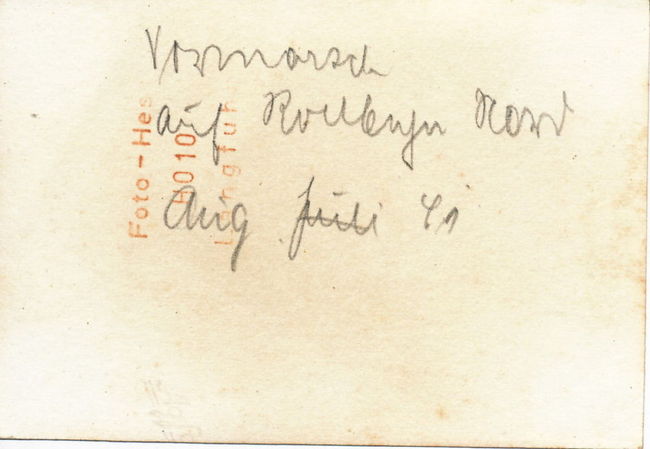 Vormarsch
auf Rollbahn Nord
Aug Juli 41
Foto-Hes
Langfuhr